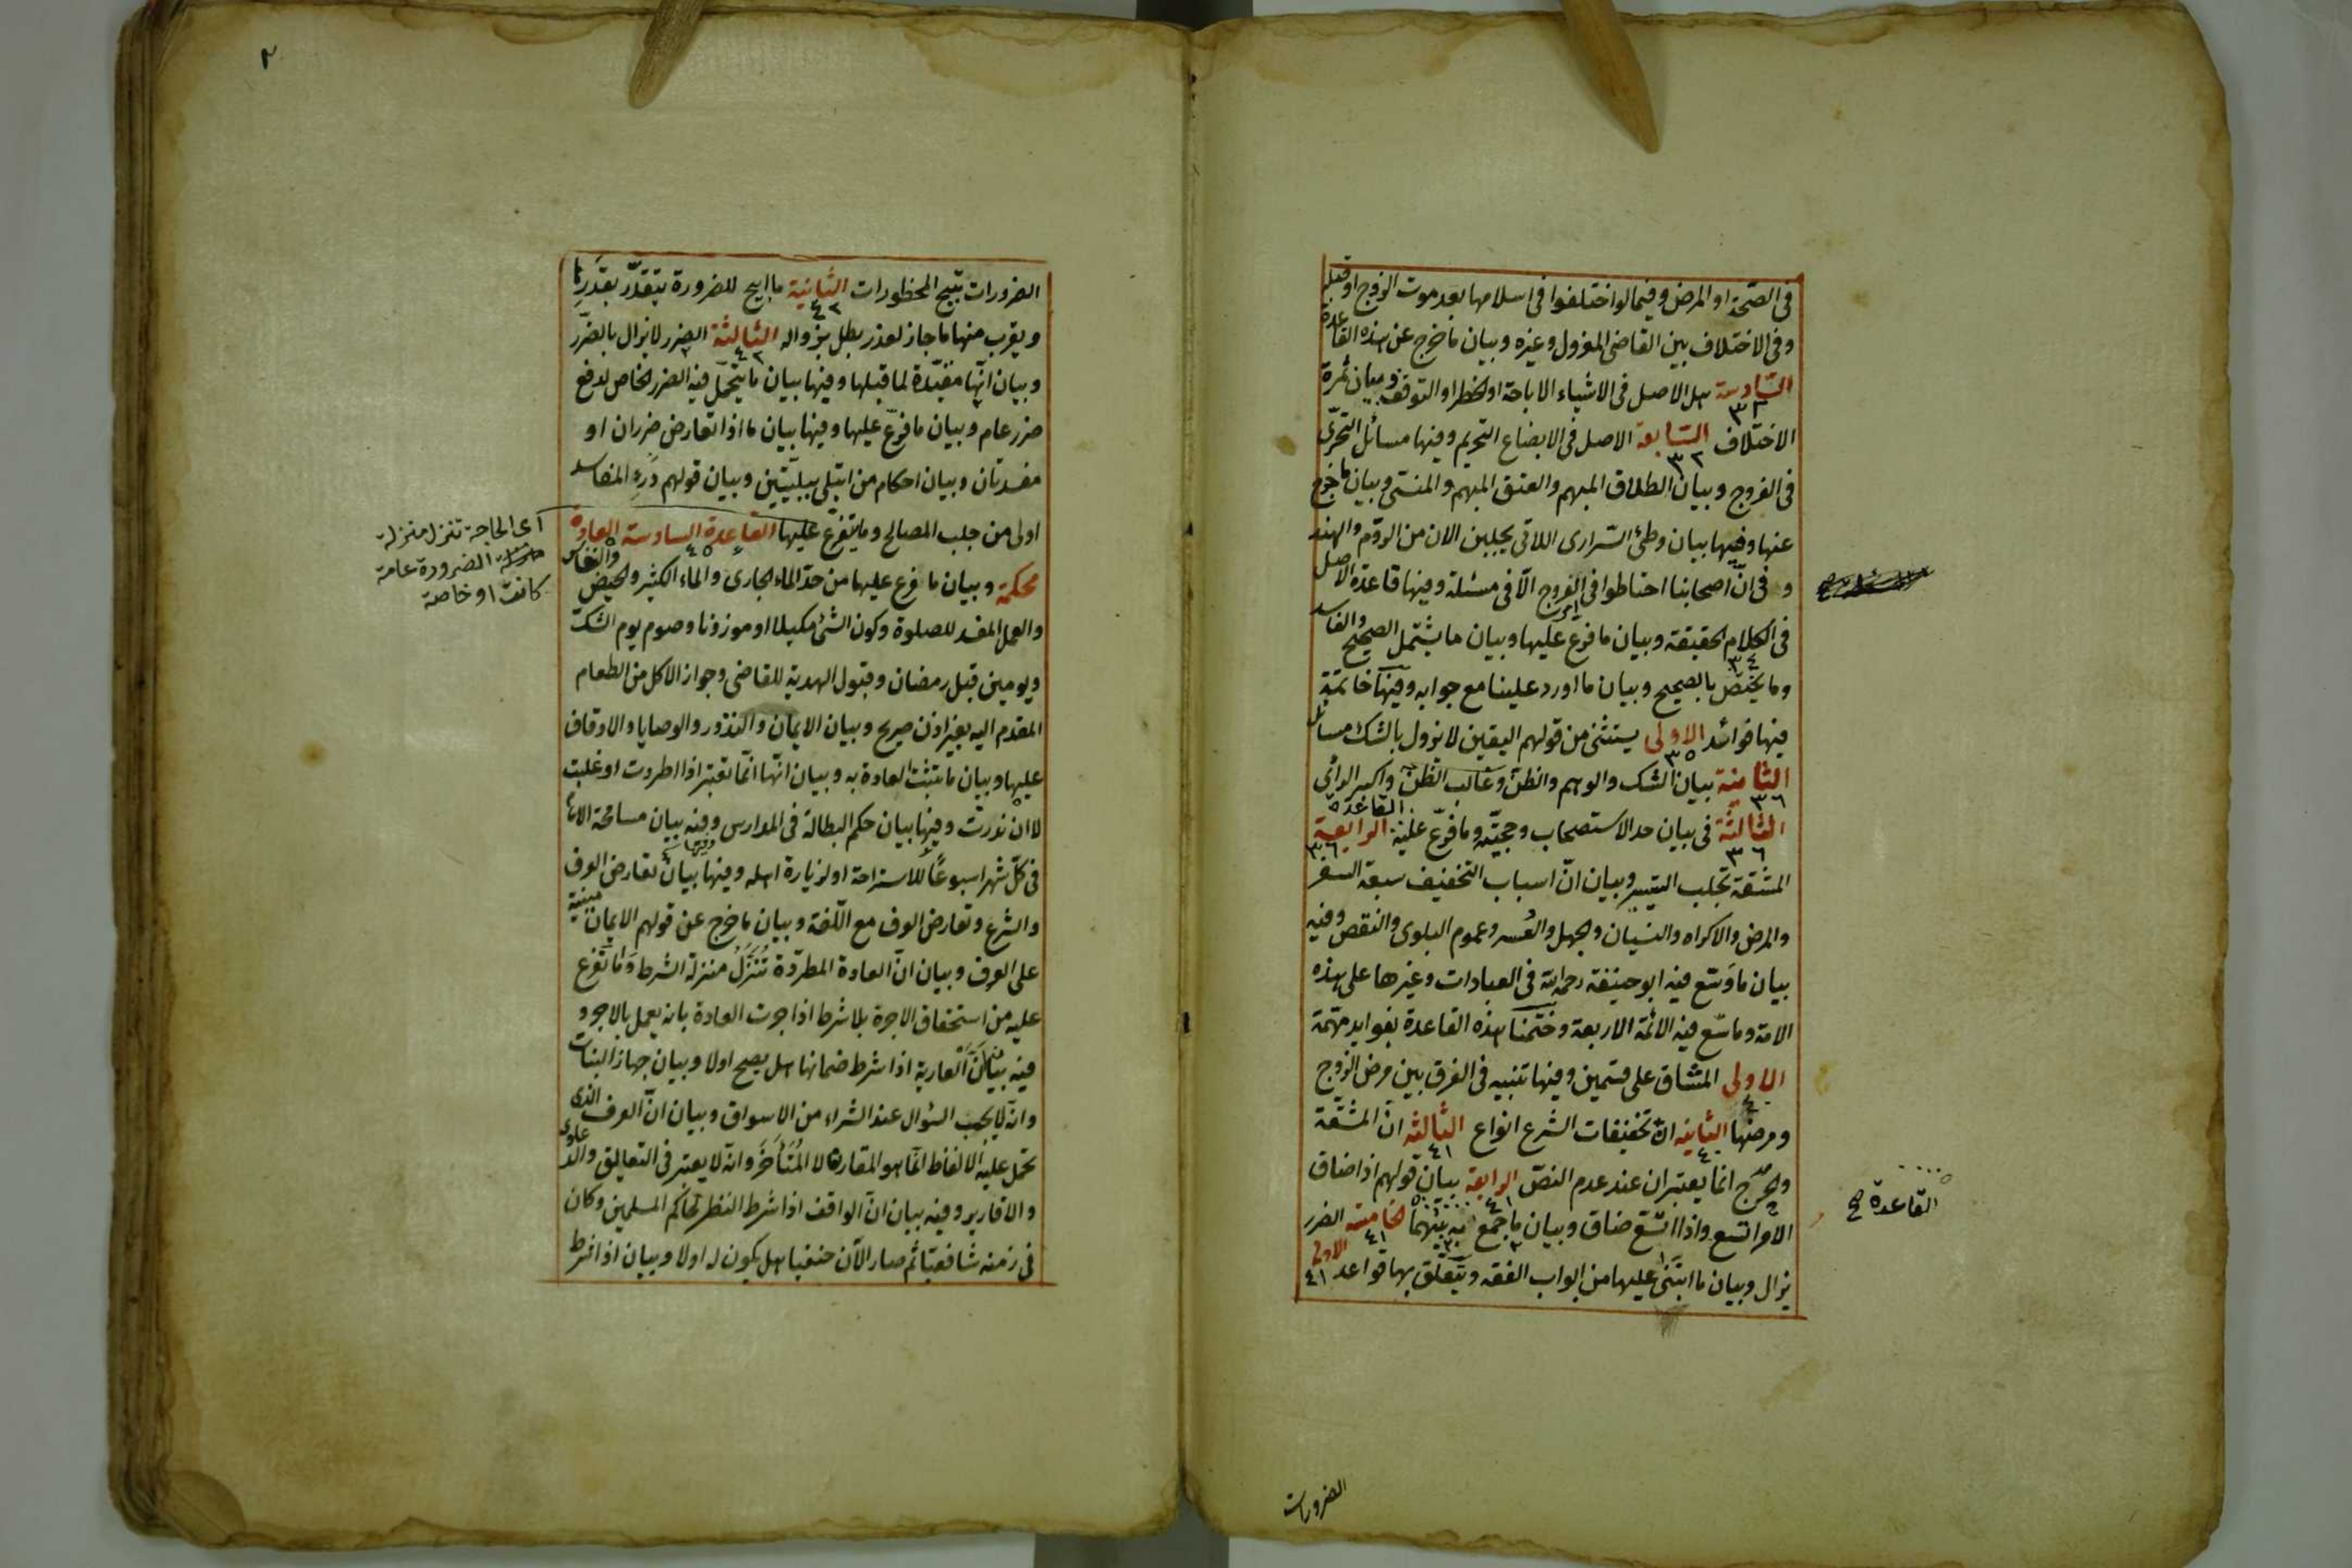 في الصحة او المرض وفيما لو اختلفوا في اسلامها بعد موت الزوج او قبله
وفي الاختلاف بين القاضي المعزول وغيره وبيان ما خرج عن هذه القاعدة
السادسة هل الاصل في الاشياء الاباحة او الحظر او التوقف وبيان ثمرة
٣٢
الاختلاف السابعة الاصل في الابضاع التحريم وفيها مسائل التحرى
٣٢
في الفروج وبيان الطلاق المبهم والعتق المبهم والمنسى وبيان ما خرج
عنها وفيها بيان وطئ السرارى اللاتي يجلبن الان من الروم والهند
و في ان اصحابنا احتاطوا في الفروج الا في مسئلة وفيها قاعدة الاصل
في الكلام الحقيقة وبيان ما فرع عليها وبيان ما يشتمل الصحيح والفاسد
٣٤
وما يختص بالصحيح وبيان ما اورد علينا مع جوابه وفيها خاتمة
فيها فوائد الاولى يستثنى من قولهم اليقين لا يزول بالشك مسائل
٣٥
الثانية بيان الشك والوهم والظن وغالب الظن واكبر الرائ
٣٦
الثالثة في بيان حد الاستصحاب وحجيته وما فرع عليه القاعدة الرابعة
٣٦
٣٦
المشقة تجلب التيسير وبيان ان اسباب التخفيف سبعة السفر
والمرض والاكراه والنسيان والجهل والعسر وعموم البلوى والنقص وفيه
بيان ما وسّع فيه ابو حنيفة رحمه الله في العبادات وغيرها على هذه
الامة وما سّع فيه الائمة الاربعة وختمنا هذه القاعدة بفوايد مهمة
الاولى المشاق على قسمين وفيها تنبيه في الفرق بين مرض الزوج
٤٠
ومرضها الثانيه ان تخفيفات الشرع انواع الثالثه ان المشقة
٤٠
٤١
والحرج انما يعتبران عند عدم النص الرابعة بيان قولهم اذا ضاق
٤١
الامر اتسع واذا اتسع ضاق وبيان ما جمع به بينهما الخامسه الضرر
٤١
يزال وبيان ما ابتنى عليها من ابواب الفقه ويتعلق بها قواعد الاولى
٤١
القاعدة صح
الضرورات
٢
الضرورات تبيح المحظورات الثانية ما ابيح للضرورة يتقدر بقدرها
٤٢
ويقرب منها ما جاز لعذر بطل بزواله الثالثة الضرر لا يزال بالضرر
٤٢
وبيان انها مقيدة لما قبلها وفيها بيان ما يتحمل فيه الضرر الخاص لدفع
ضرر عام وبيان ما فرع عليها وفيها بيان ما اذا تعارض ضرران او
مفسدتان وبيان احكام من ابتلى ببليتين وبيان قولهم درء المفاسد
اولى من جلب المصالح وما يتفرع عليها القاعدة السادسة العادة
٤٥
محكمة وبيان ما فرع عليها من حد الماء الجارى والماء الكثير والحيض والنفاس
والعمل المفسد للصلوة وكون الشئ مكيلا او موزونا وصوم يوم الشك
ويومين قبل رمضان وقبول الهدية للقاضي وجواز الاكل من الطعام
المقدم اليه بغير اذن صريح وبيان الايمان والنذور والوصايا والاوقاف
عليها وبيان ما يتبثت العادة به وبيان انها انما تعتبر اذا اطردت او غلبت
لا ان ندرت وفيها بيان حكم البطالة في المدارس وفيه بيان مسامحة الامام
في كل شهر اسبوعا للاستراحة او لزيارة اهله وفيها بيان تعارض العرف
والشرع وتعارض العرف مع اللغة وبيان ما خرج عن قولهم الايمان مبنية
على العرف وبيان ان العادة المطردة تنزل منزلة الشرط وما تفرع
عليه من استحقاق الاجرة بلا شرط اذا جرت العادة بانه يعمل بالاجر و
فيه بيان العارية اذا شرط ضمانها هل يصح اولا وبيان جهاز البنات
وانه لا يجب السؤال عند الشراء من الاسواق وبيان ان العرف الذى
تحمل عليه الالفاظ انما هو المقارن لا المتأخر وانه لا يعتبر في التعاليق والدعاوى
والاقارير وفيه بيان ان الواقف اذا شرط النظر لحاكم المسلمين وكان
في زمنه شافعيا ثم صار الآن حنفيا هل يكون له اولا وبيان اذا شرط
اى الحاجة تنزل منزلة
الضرورة عامة
كانت او خاصة